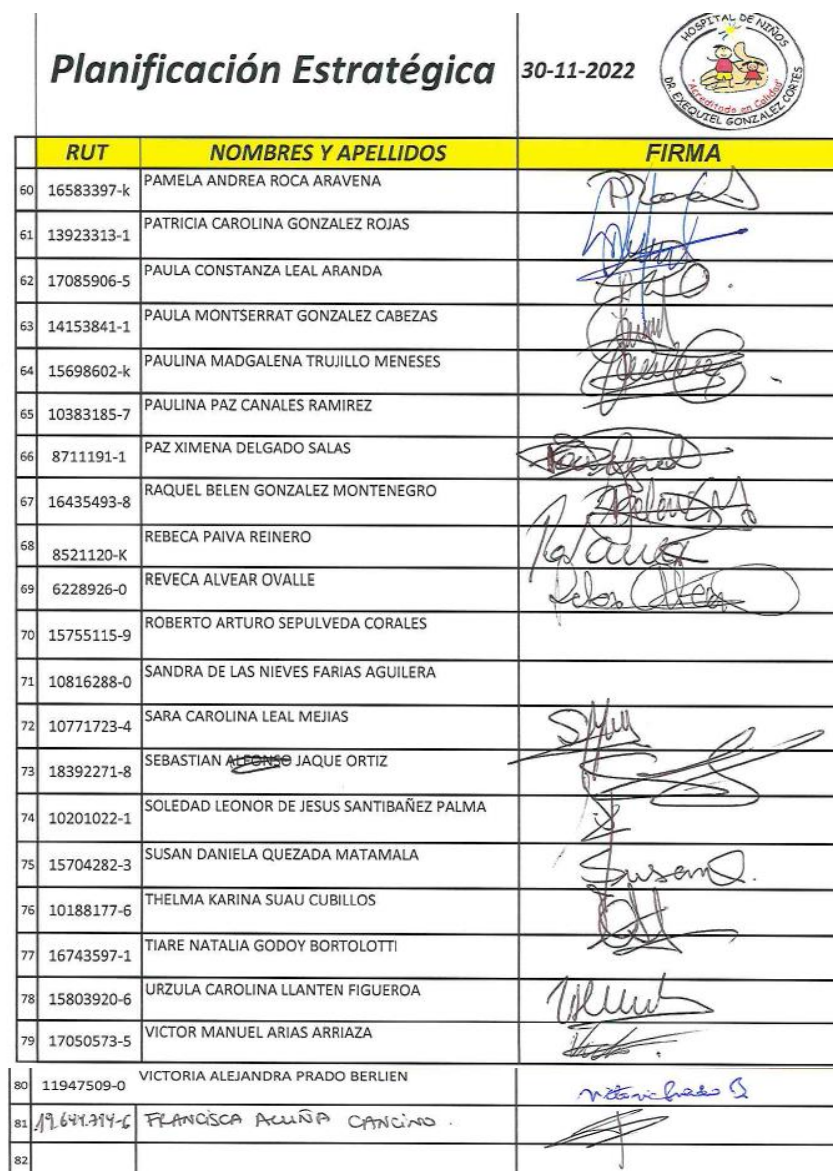 Planificación Estratégica 30-11-2022
HOSPITAL DE NIÑOS
"Acreditado en Calidad"
DR. EXEQUIEL GONZALEZ CORTES
RUT NOMBRES Y APELLIDOS FIRMA
60 16583397-k PAMELA ANDREA ROCA ARAVENA
61 13923313-1 PATRICIA CAROLINA GONZALEZ ROJAS
62 17085906-5 PAULA CONSTANZA LEAL ARANDA
63 14153841-1 PAULA MONTSERRAT GONZALEZ CABEZAS
64 15698602-k PAULINA MADGALENA TRUJILLO MENESES
65 10383185-7 PAULINA PAZ CANALES RAMIREZ
66 8711191-1 PAZ XIMENA DELGADO SALAS
67 16435493-8 RAQUEL BELEN GONZALEZ MONTENEGRO
68 8521120-K REBECA PAIVA REINERO
69 6228926-0 REVECA ALVEAR OVALLE
70 15755115-9 ROBERTO ARTURO SEPULVEDA CORALES
71 10816288-0 SANDRA DE LAS NIEVES FARIAS AGUILERA
72 10771723-4 SARA CAROLINA LEAL MEJIAS
73 18392271-8 SEBASTIAN ALFONSO JAQUE ORTIZ
74 10201022-1 SOLEDAD LEONOR DE JESUS SANTIBAÑEZ PALMA
75 15704282-3 SUSAN DANIELA QUEZADA MATAMALA Susan Q.
76 10188177-6 THELMA KARINA SUAU CUBILLOS
77 16743597-1 TIARE NATALIA GODOY BORTOLOTTI
78 15803920-6 URZULA CAROLINA LLANTEN FIGUEROA
79 17050573-5 VICTOR MANUEL ARIAS ARRIAZA
80 11947509-0 VICTORIA ALEJANDRA PRADO BERLIEN
81 FRANCISCA ACUÑA CANCINO.
82